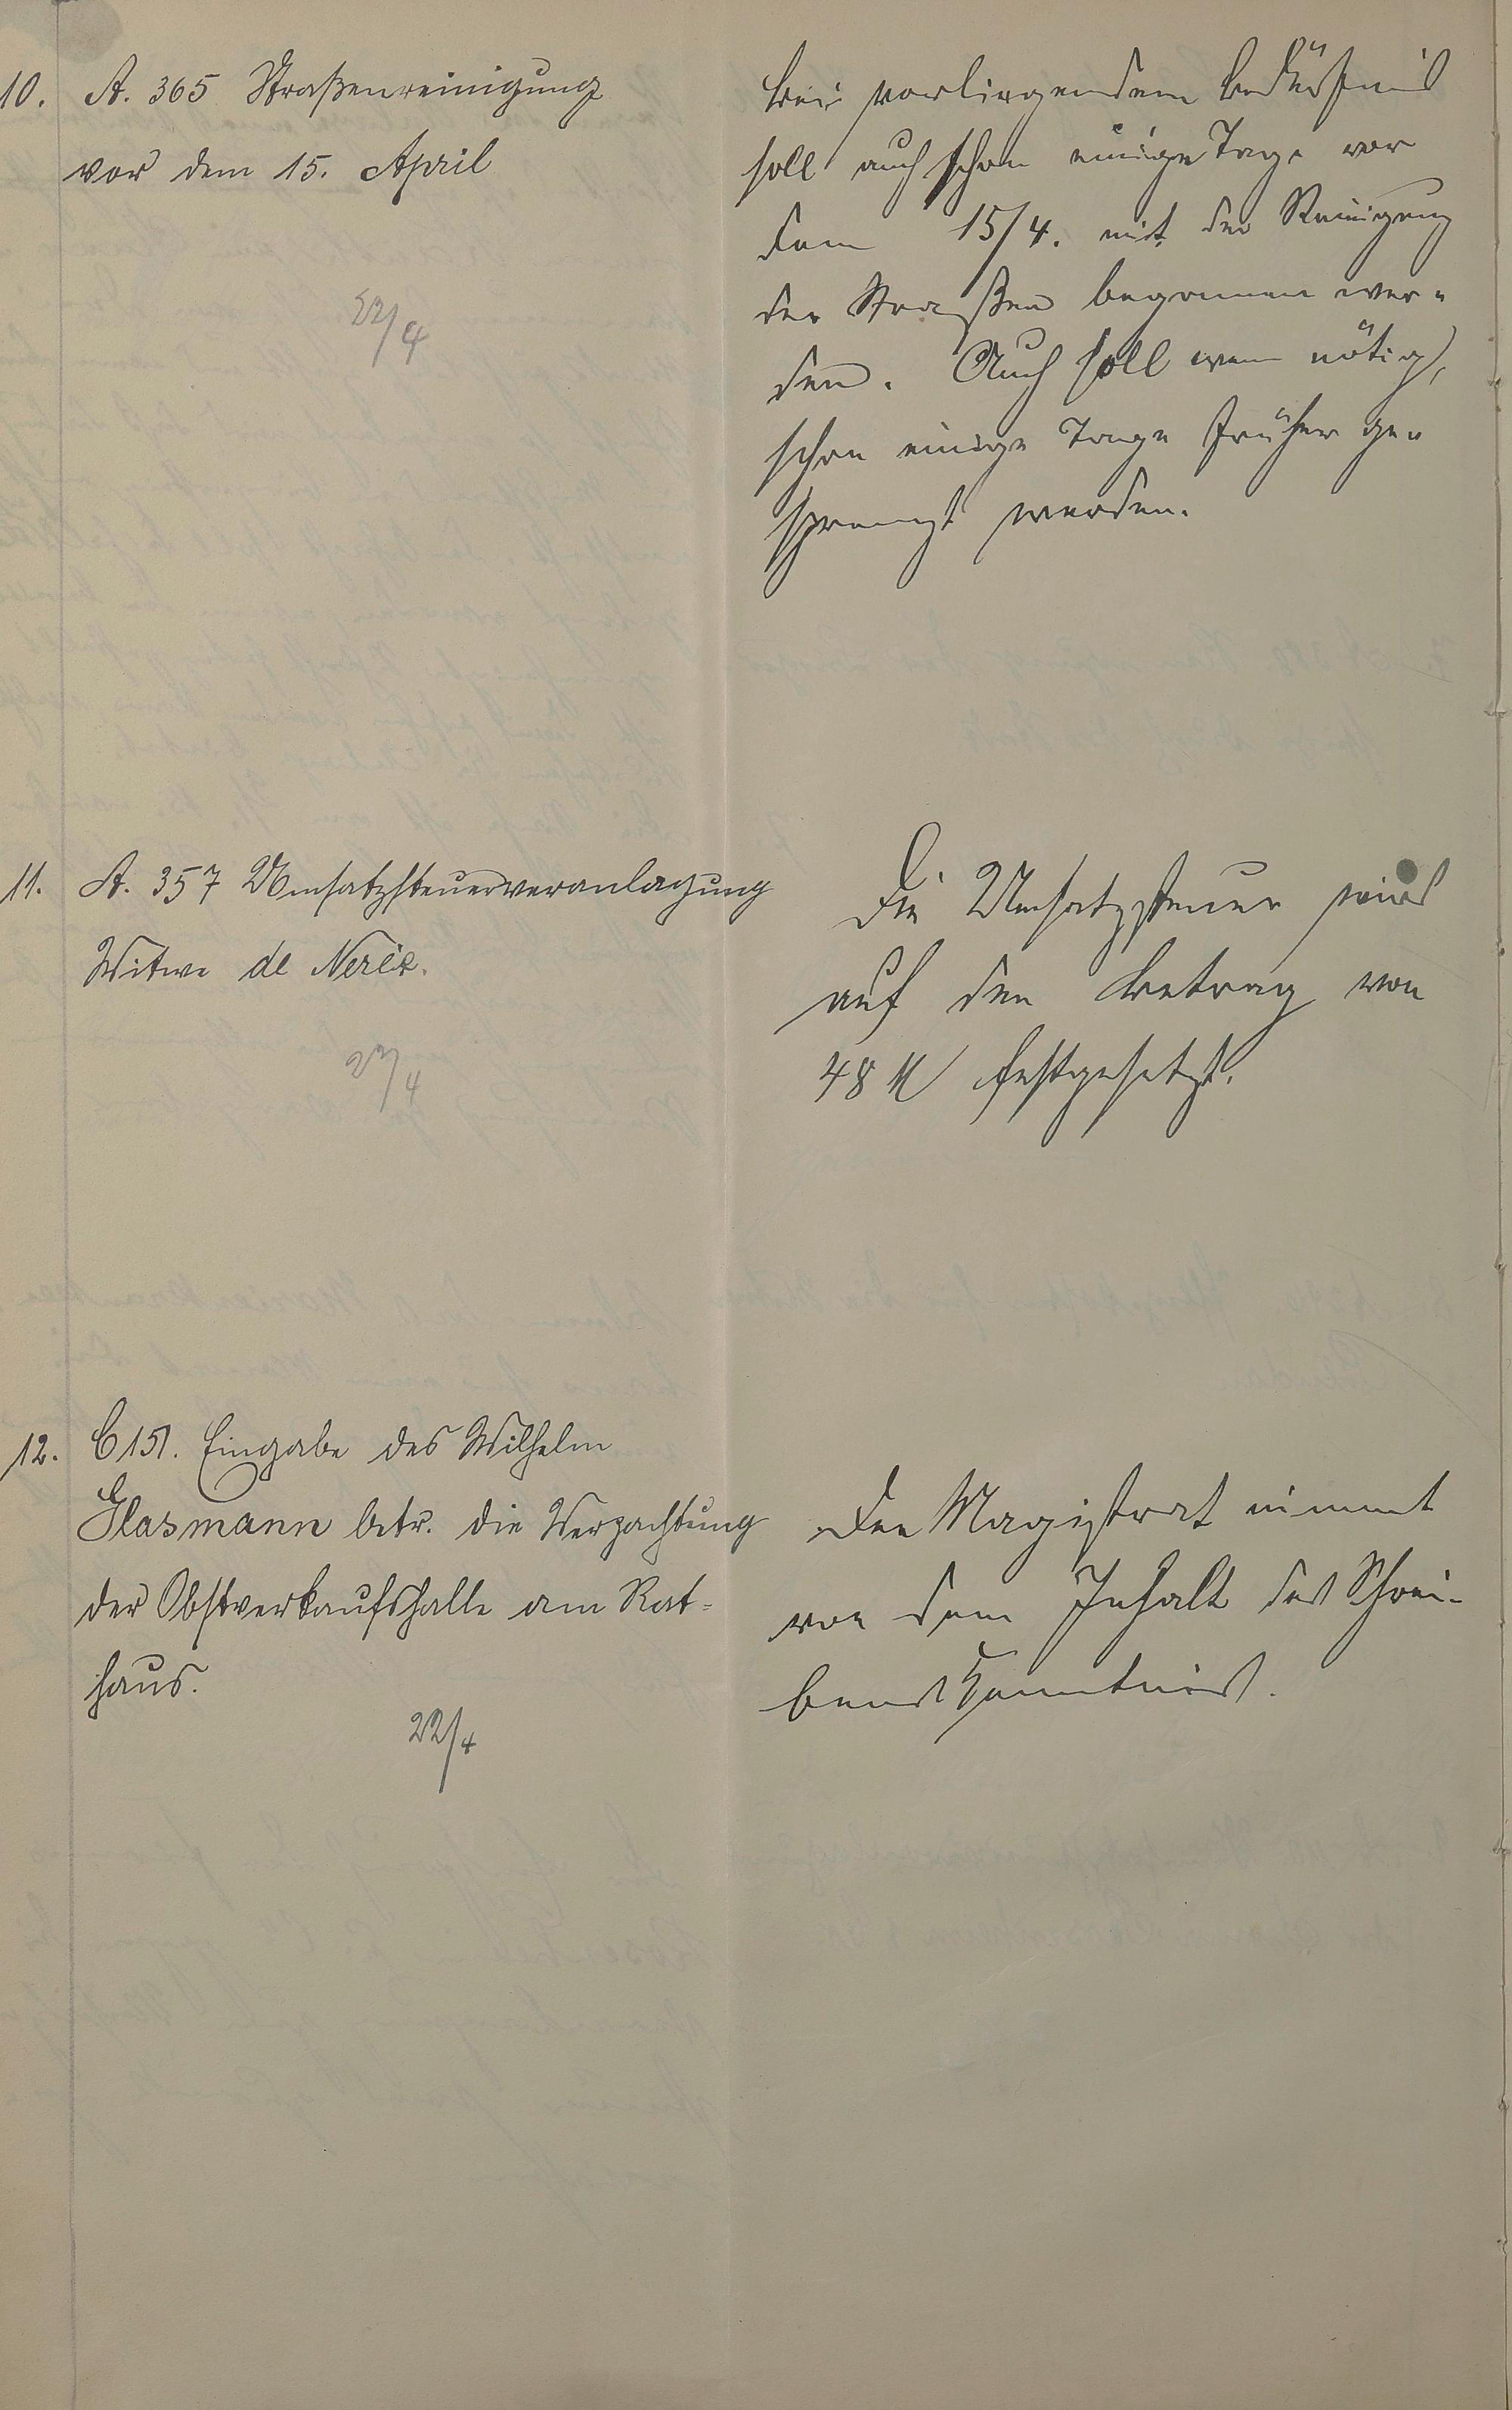 10. A. 365 Straßenreinigung
vor dem 15. April
22/4
bei vorliegendem Bedürfnis
soll auch schon einige Tage vor
dem 15/4. mit der Reinigung
der Straßen begonnen wer-
den. Auch soll wenn nötig,
schon einige Tage früher ge-
sprengt werden.
11. A. 357 Umsatzsteuerveranlagung
Witwe de Nerée.
22/4
Die Umsatzsteuer wird
auf den Betrag von
48 M festgesetzt.
12. C 151. Eingabe des Wilhelm
Glasmann betr. die Verpachtung
der Obstverkaufshalle am Rat-
haus.
22/4
Der Magistrat nimmt
von dem Inhalt des Schrei-
bens Kenntnis.